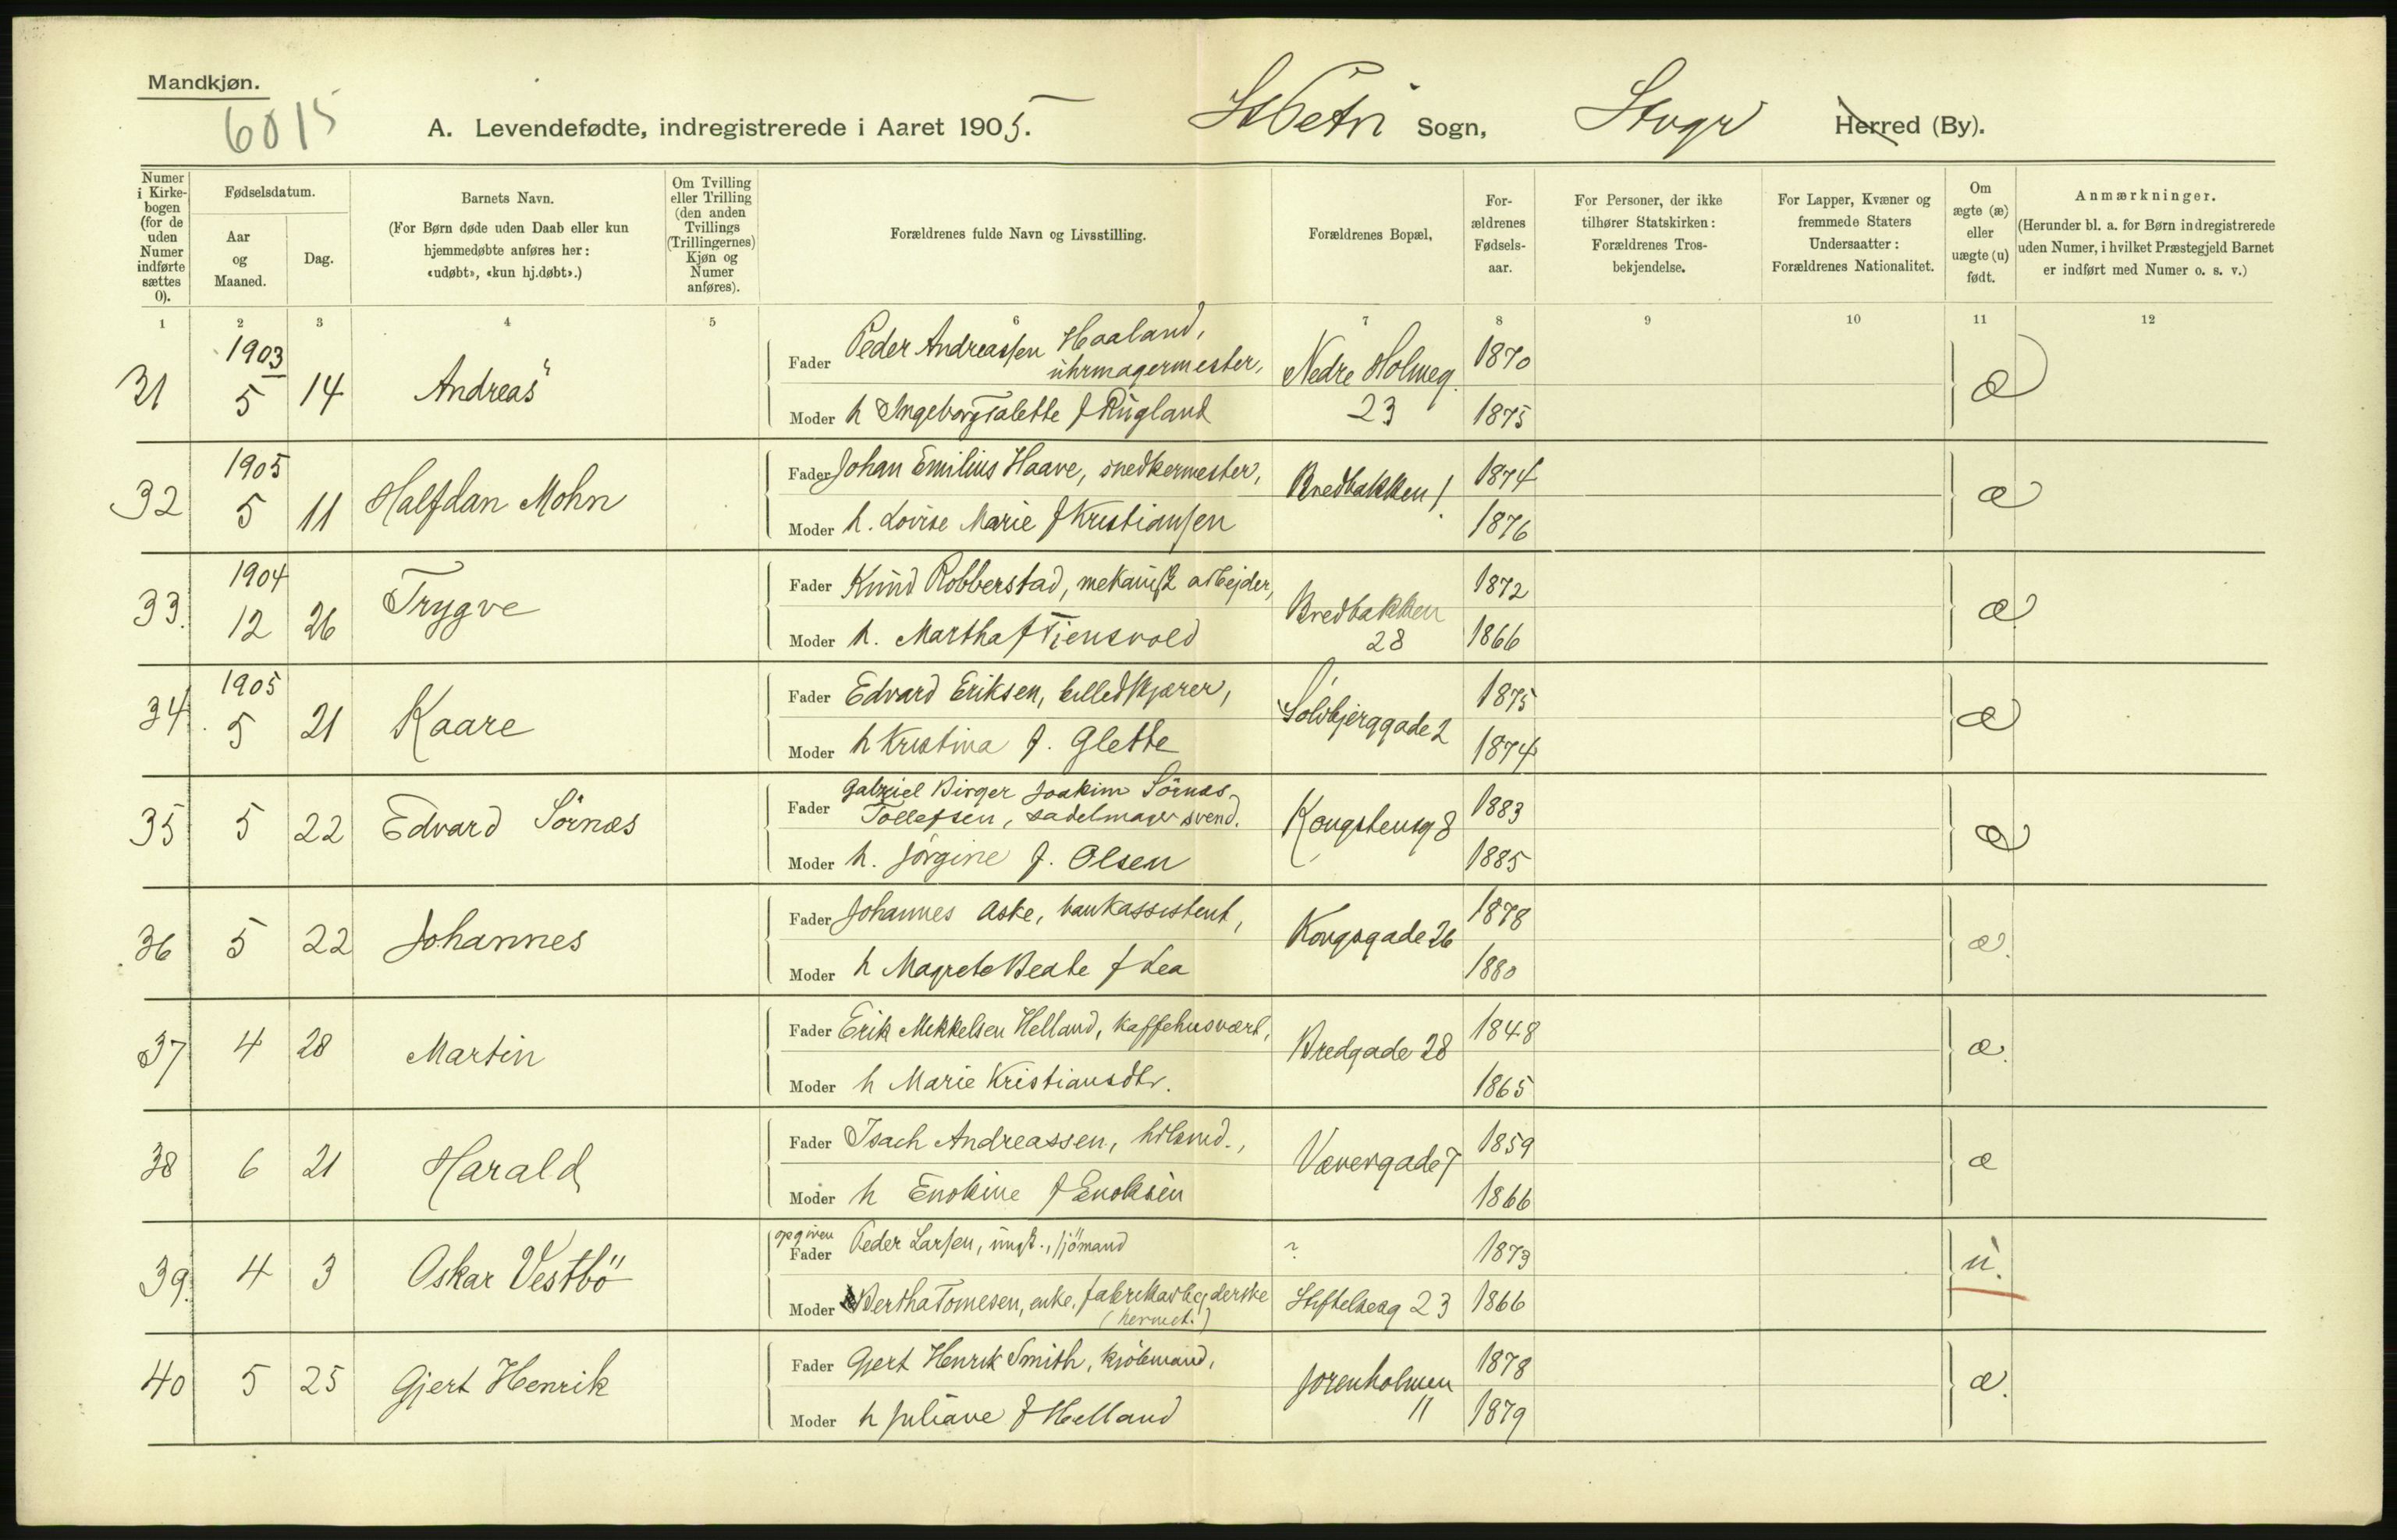 Mandkjøn.
6015
A. Levendefødte, indregistrerede i Aaret 1905. St Petri Sogn, Stvgr Herred (By).
Numer i Kirkebogen (for de uden Numer indførte sættes 0).
Fødselsdatum.
Aar og Maaned.
Dag.
Barnets Navn.
(For Børn døde uden Daab eller kun hjemmedøbte anføres her: «udøbt», «kun hj.døbt».)
Om Tvilling eller Trilling (den anden Tvillings (Trillingernes) Kjøn og Numer anføres).
Forældrenes fulde Navn og Livsstilling.
Forældrenes Bopæl,
Forældrenes Fødselsaar.
For Personer, der ikke tilhører Statskirken: Forældrenes Trosbekjendelse.
For Lapper, Kvæner og fremmede Staters Undersaatter: Forældrenes Nationalitet.
Om ægte (æ) eller uægte (u) født.
Anmærkninger.
(Herunder bl. a. for Børn indregistrerede uden Numer, i hvilket Præstegjeld Barnet er indført med Numer o. s. v.)
1 2 3 4 5 6 7 8 9 10 11 12
31 1903 5 14 Andreas
Fader Peder Andreassen Haaland, uhrmagermester, Nedre Holmeg. 23 1870 æ
Moder h Ingeborg Talette f Rugland 1875
32 1905 5 11 Halfdan Mohn
Fader Johan Emilius Haave, snedkermester, Bredbakken 1. 1874 æ
Moder h. Lovise Marie f Kristiansen 1876
33. 1904 12 26 Trygve
Fader Knud Robberstad, mekanisk arbejder, Bredbakken 28 1872 æ
Moder h. Martha f Tjensvold 1866
34. 1905 5 21 Kaare
Fader Edvard Eriksen, billedskjærer, Solvbjerggade 2 1875 æ
Moder h Kristina f. Glette 1874
35 5 22 Edvard Sörnæs
Fader Gabriel Birger Joakim Sörnæs Tollefsen, sadelmagersvend. Kongstensg 8 1883 æ
Moder h. Jörgine f. Olsen 1885
36 5 22 Johannes
Fader Johannes Aske, bankassistent, Kongsgade 26 1878 æ.
Moder h Magrete Beate f Lea 1880
37 4 28 Martin
Fader Erik Mikkelsen Helland, kaffehusvært, Bredgade 28 1848 æ.
Moder h Marie Kristiansdtr. 1865
38 6 21 Harald
Fader Isach Andreassen, Vævergade 7 1859 æ
Moder h Enokine f Enoksen 1866
39. 4 3 Oskar Vestbö
opgiven Fader Peder Larsen, ungk., sjömand ? 1873 u.
Moder Bertha Tomesen, enke, fabrikarbejderske (hermet.) Stiftelsesg 23 1866
40 5 25 Gjert Henrik
Fader Gjert Henrik Smith, kjöbmand, Jorenholmen 11 1878 æ.
Moder h Juliane f Helland 1879